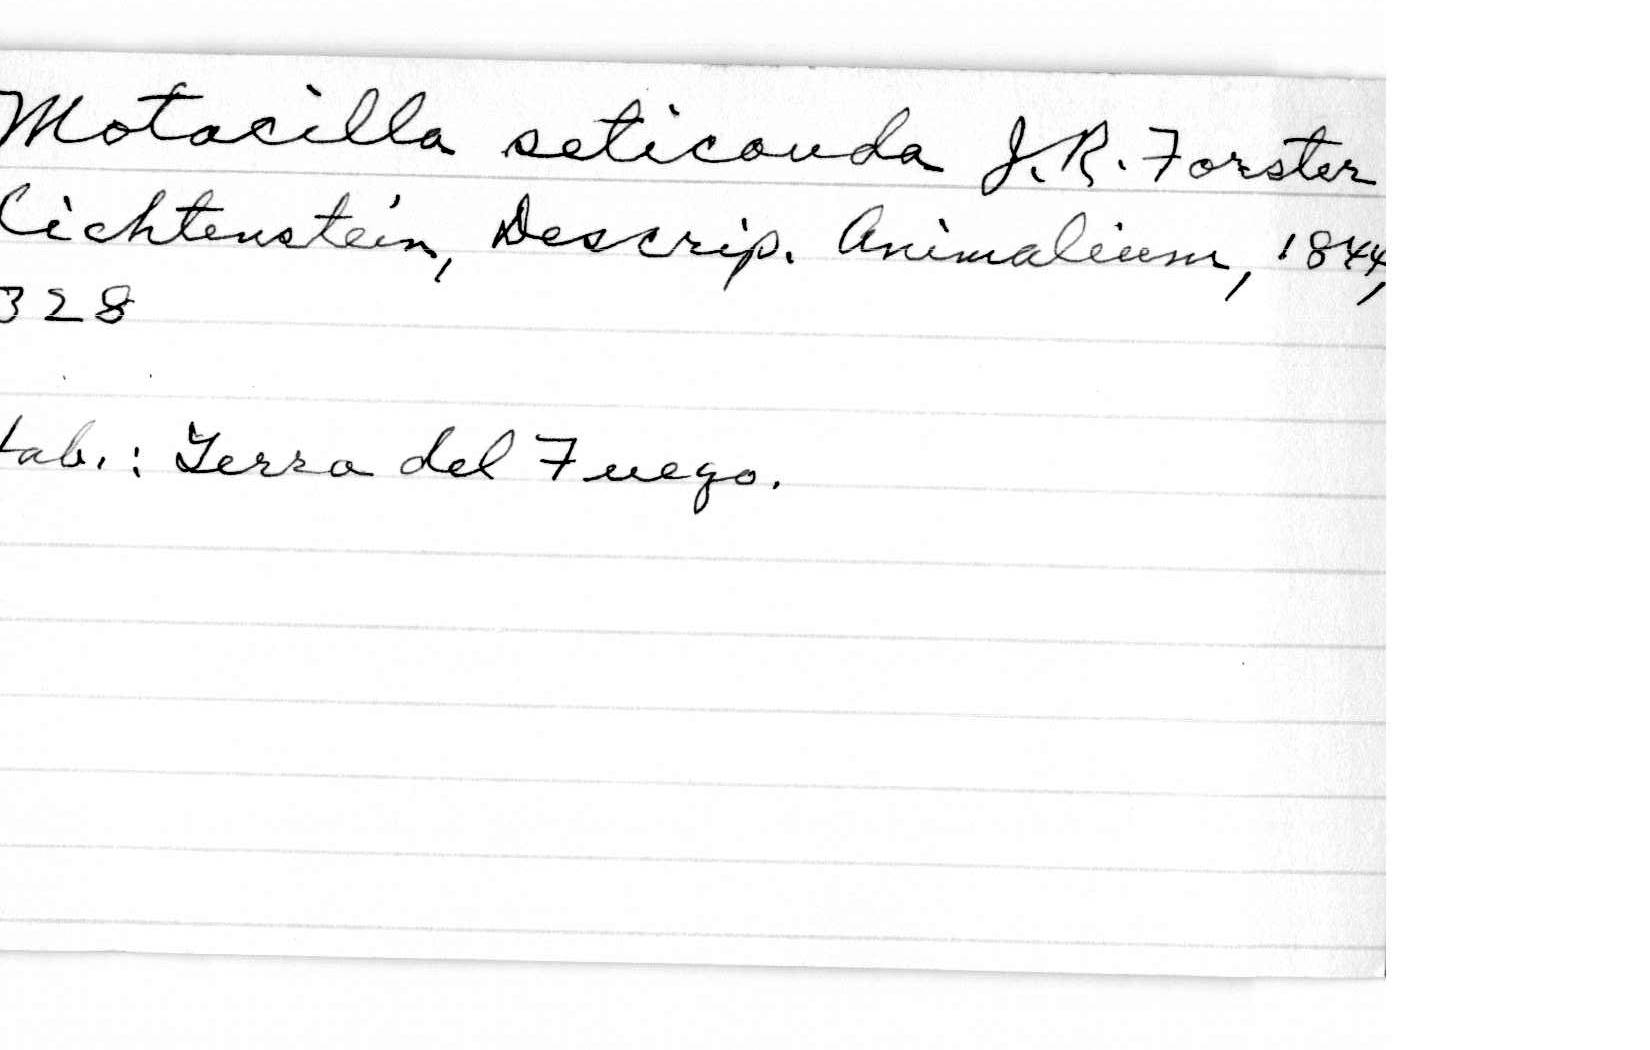 Motacilla seticauda J.R. Forster
Lichtenstein, Descrip. Animalium, 1844,
328
Hab.: Terra del Fuego.